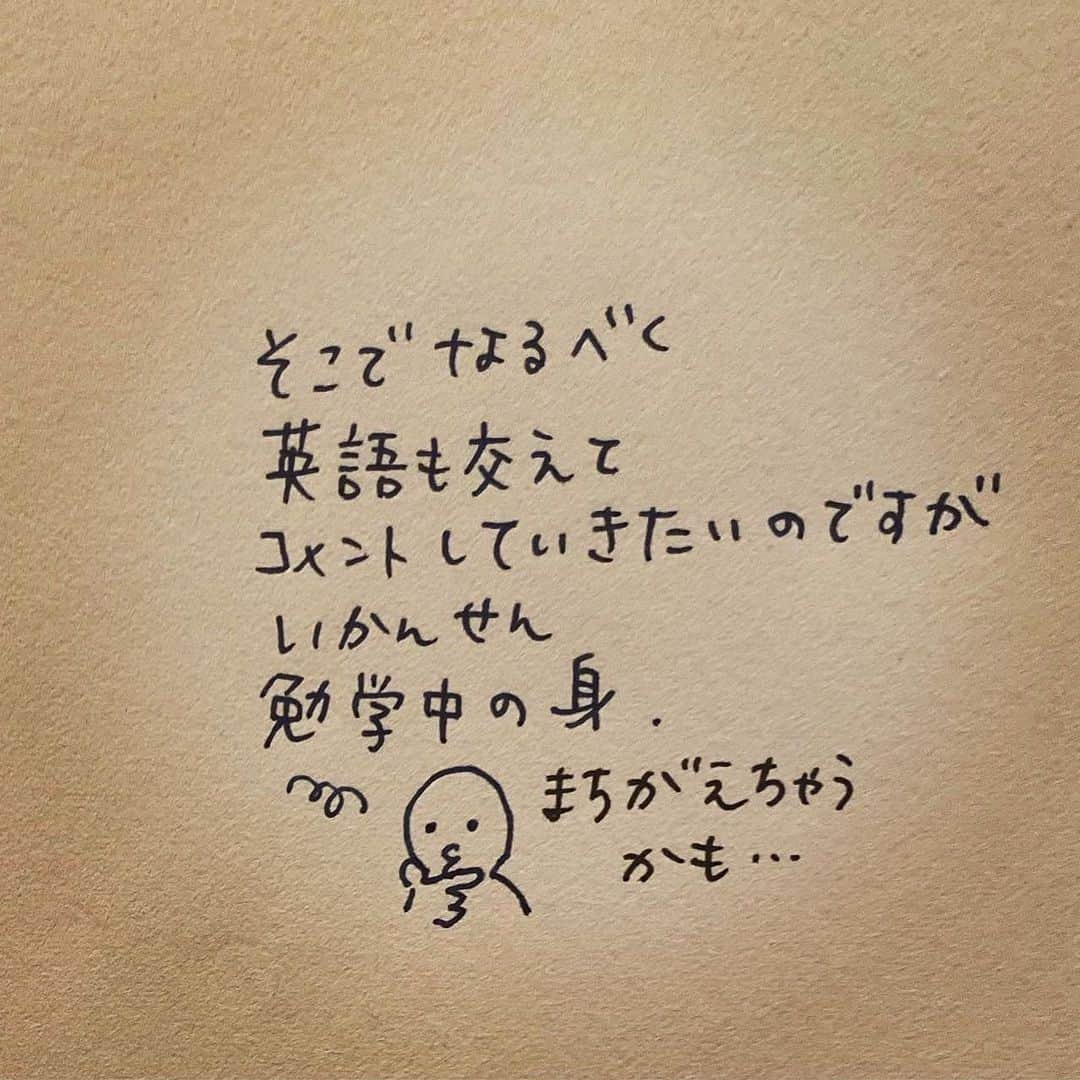 そこでなるべく
英語も交えて
コメントしていきたいのですが
いかんせん
勉学中の身.
まちがえちゃう
かも…